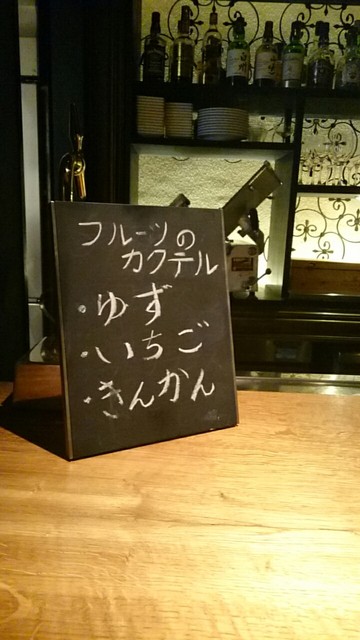 フルーツの
カクテル
・ゆず
・いちご
・きんかん